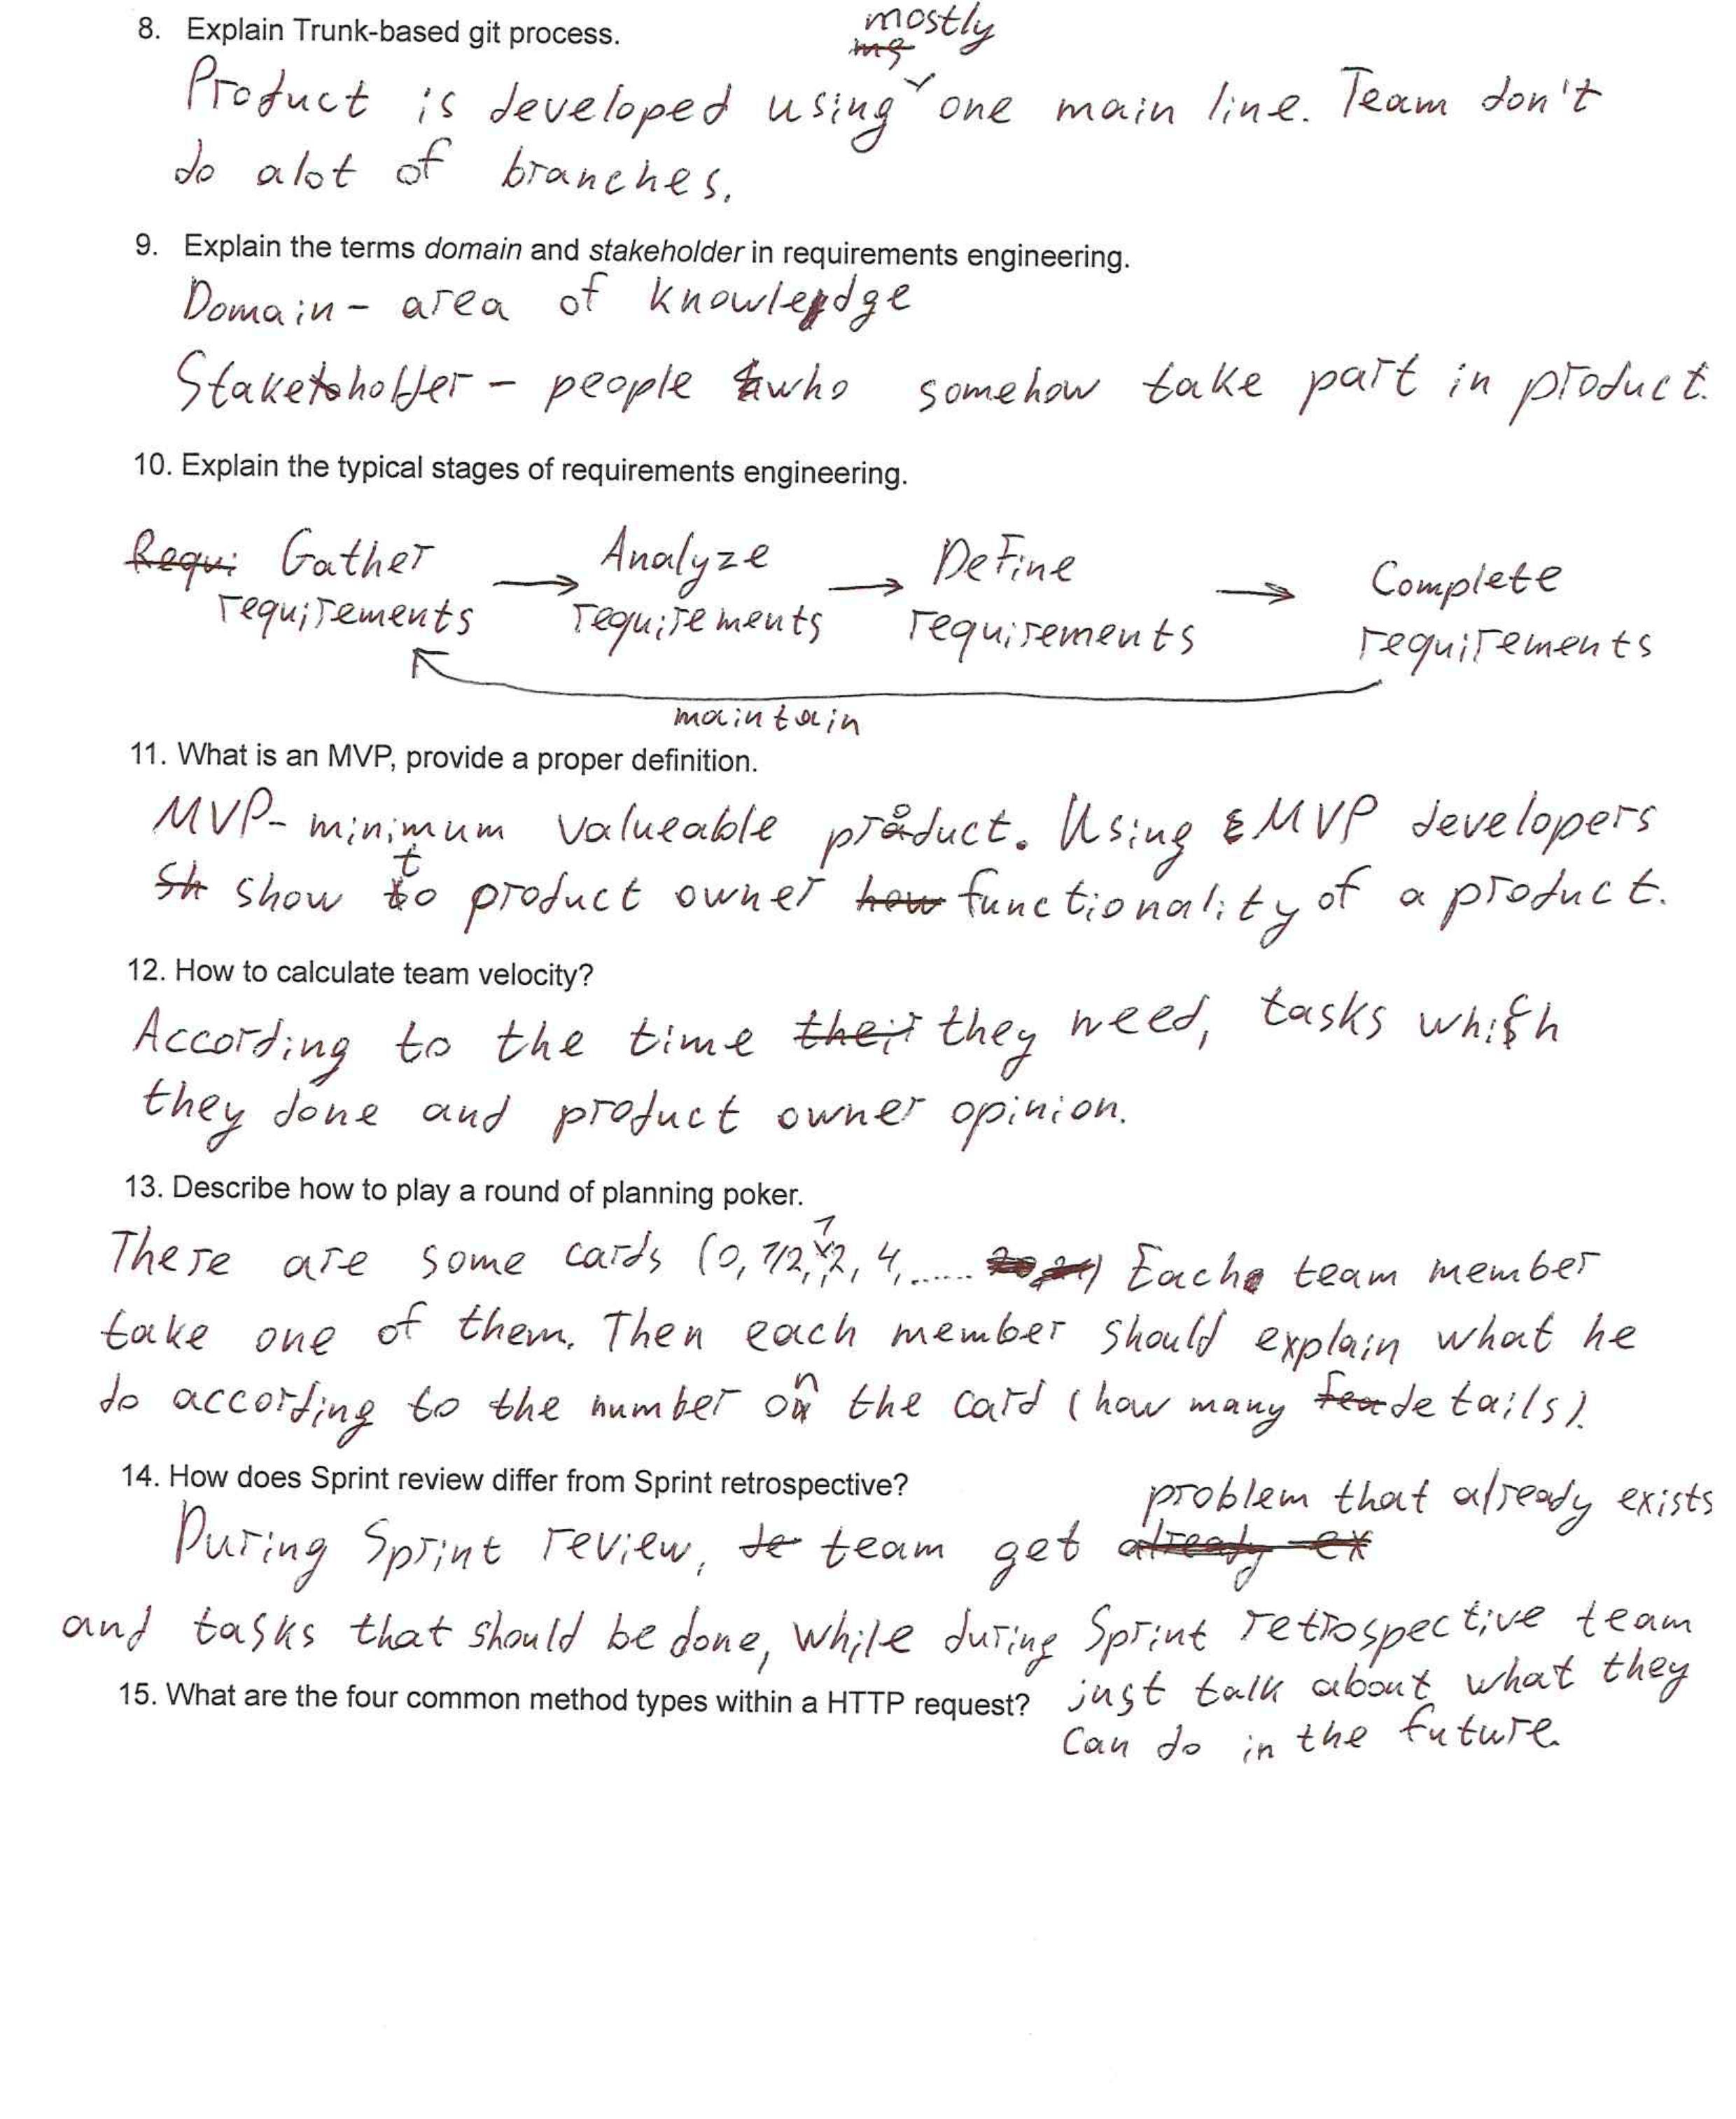 8. Explain Trunk-based git process.
mostly
Product is developed using one main line. Team don't
do alot of branches.
9. Explain the terms domain and stakeholder in requirements engineering.
Domain - area of knowledge
Stakeholder - people who somehow take part in product.
10. Explain the typical stages of requirements engineering.
Requi Gather requirements → Analyze requirements → Define requirements → Complete requirements
maintain
11. What is an MVP, provide a proper definition.
MVP - minimum valueable product. Using MVP developers
sh show to product owner how functionality of a product.
12. How to calculate team velocity?
According to the time their they need, tasks which
they done and product owner opinion.
13. Describe how to play a round of planning poker.
There are some cards (0, 1/2, 1, 2, 4, ......) Each team member
take one of them. Then each member should explain what he
do according to the number on the card (how many details).
14. How does Sprint review differ from Sprint retrospective?
problem that already exists
During Sprint review, te team get already ex
and tasks that should be done, while during Sprint retrospective team
just talk about what they
15. What are the four common method types within a HTTP request?
can do in the future.